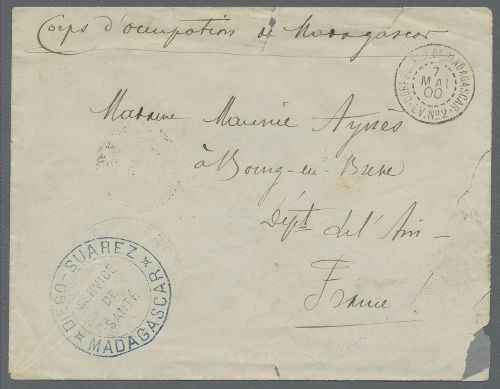 Corps d'occupation de Madagascar
7
MAI
00
MADAGASCAR
L.V.Nº2
Madame
à Bourg-en-Bresse
Dépt de l'Ain
France!
DIEGO-SUAREZ
SERVICE
DE
SANTÉ
MADAGASCAR